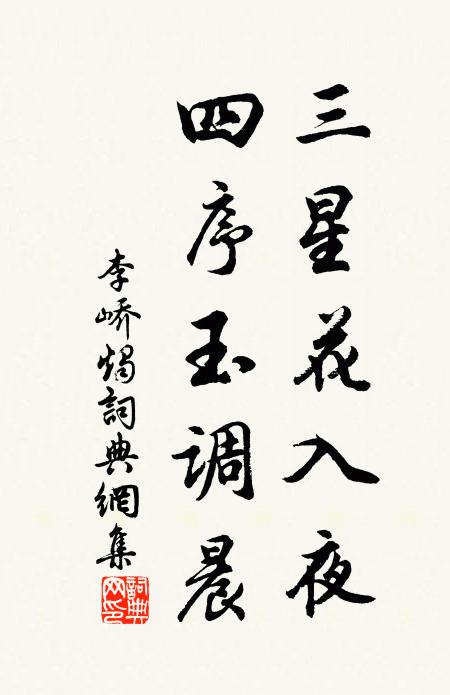 三星花入夜
四序玉调晨
李峤烛詞典網集
詞典
网印